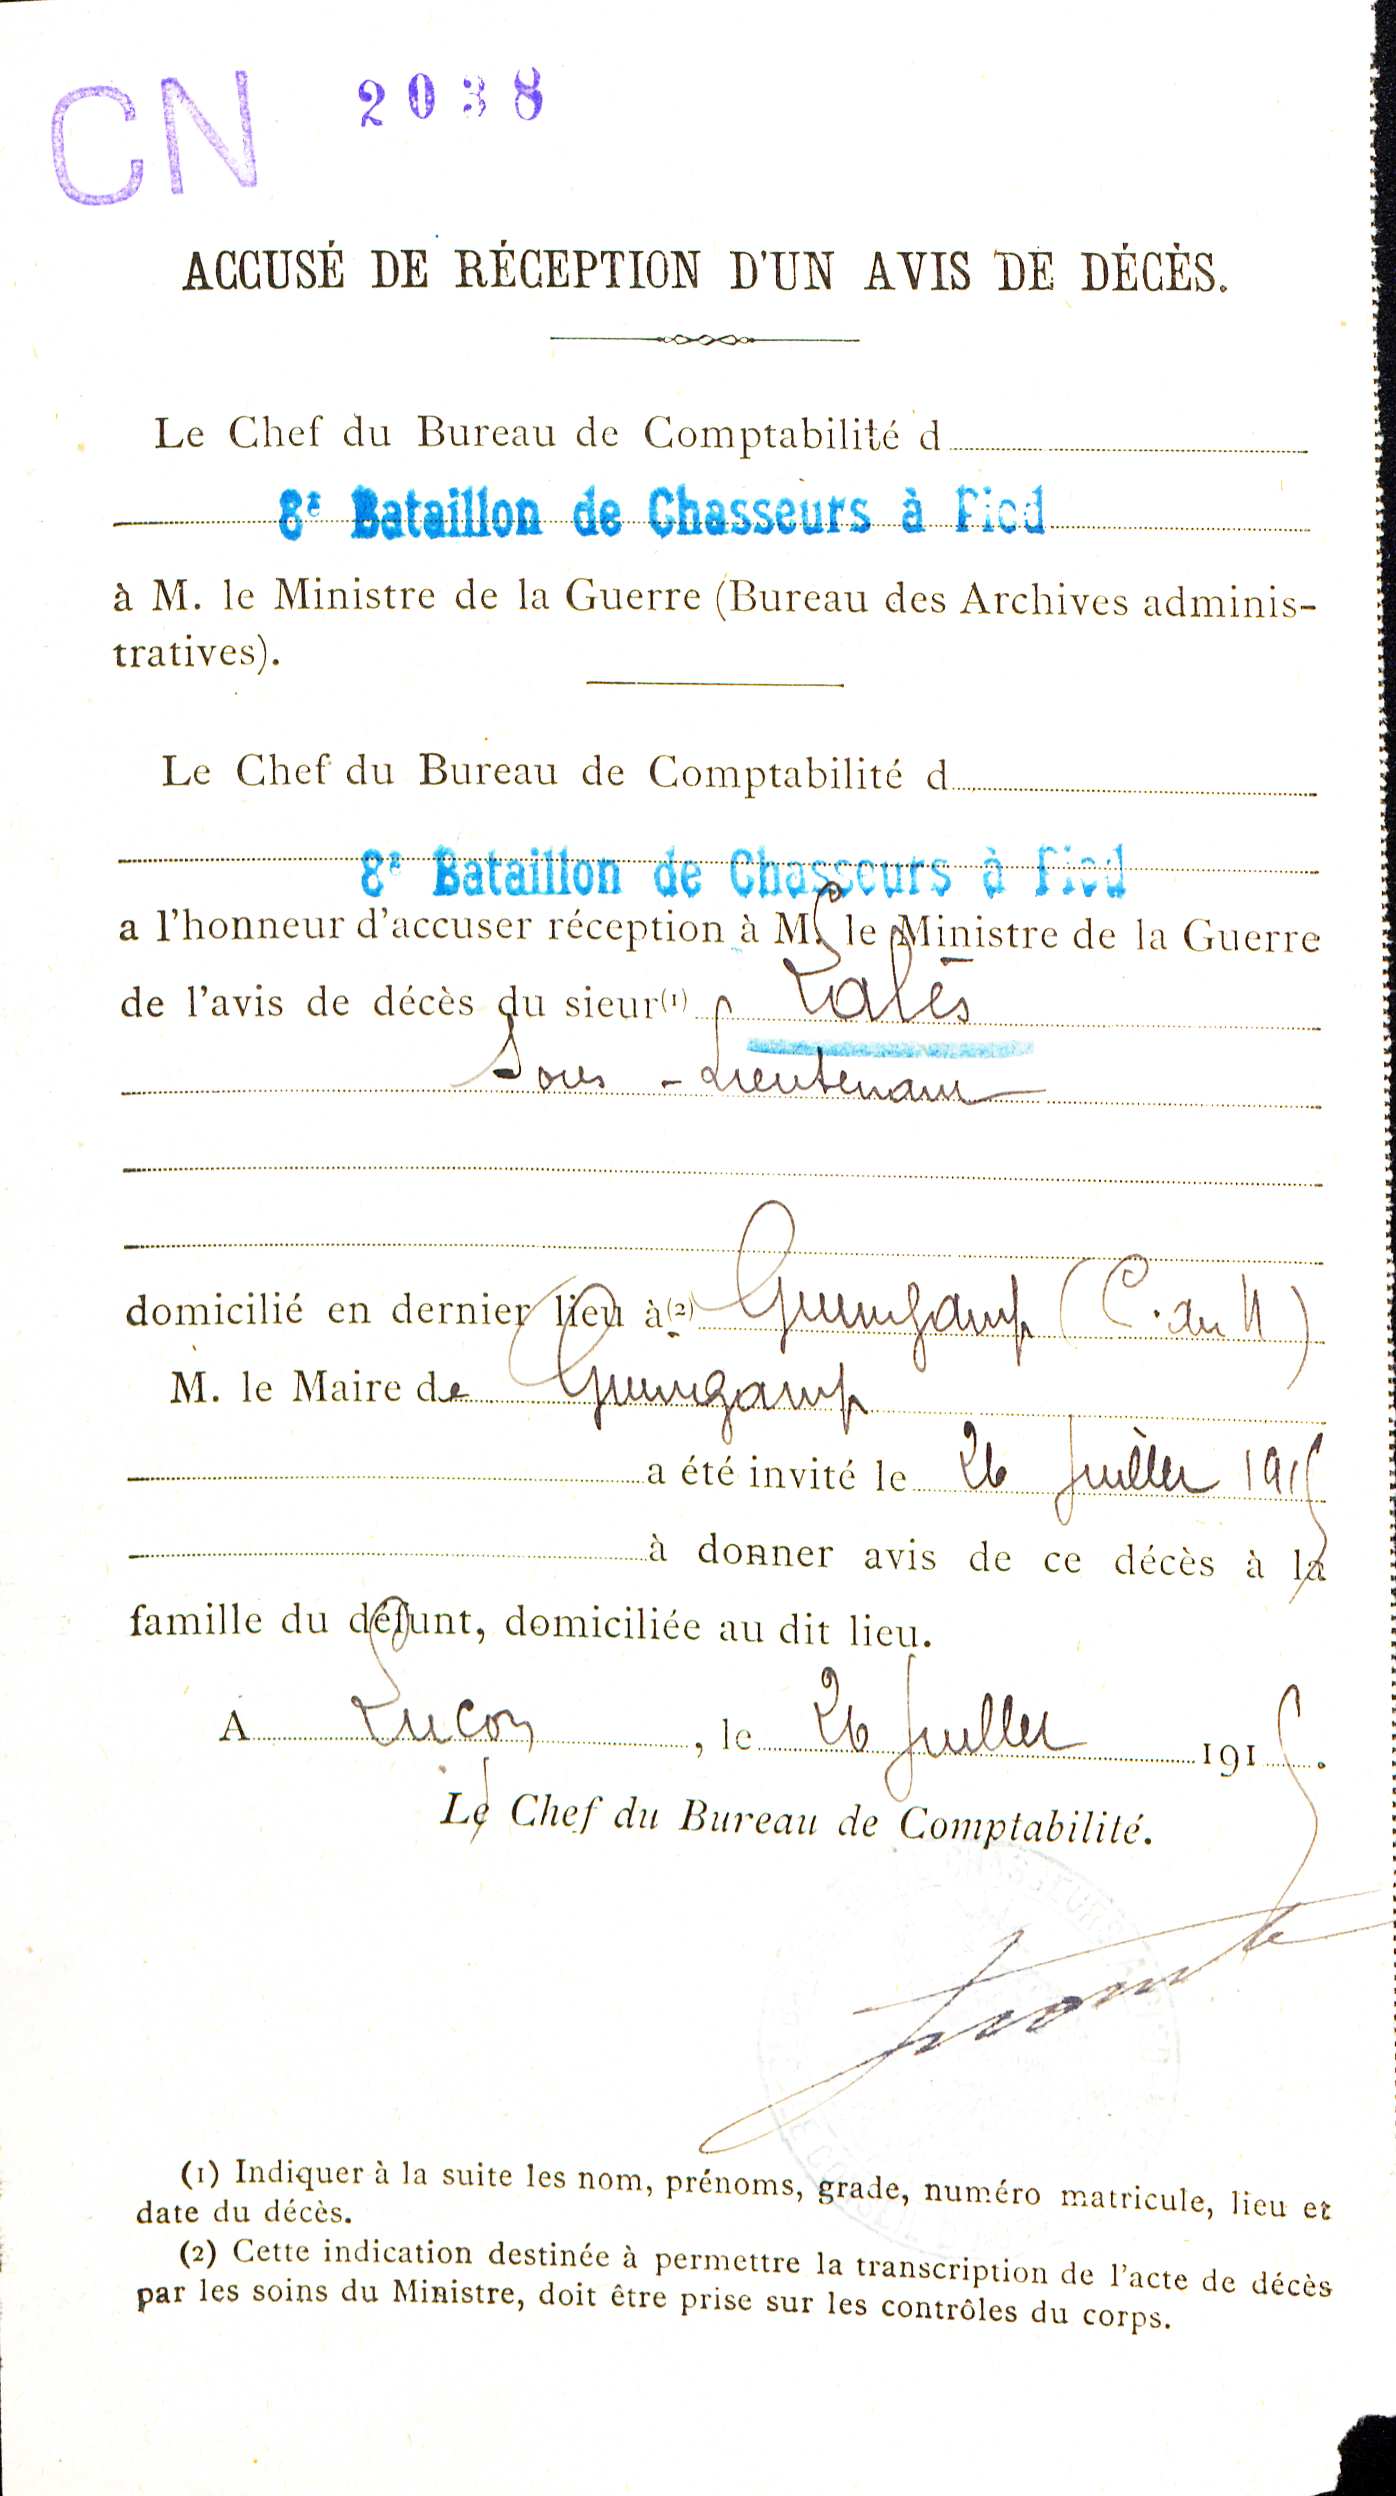 CN 2038
ACCUSÉ DE RÉCEPTION D'UN AVIS DE DÉCÈS.
Le Chef du Bureau de Comptabilité d
8e Bataillon de Chasseurs à Pied
à M. le Ministre de la Guerre (Bureau des Archives adminis-
tratives).
Le Chef du Bureau de Comptabilité d
8e Bataillon de Chasseurs à Pied
a l'honneur d'accuser réception à M. le Ministre de la Guerre
de l'avis de décès du sieur(1) Lalès
Sous-Lieutenant
domicilié en dernier lieu à(2) Guingamp (C. du N)
M. le Maire de Guingamp
a été invité le 26 Juillet 1915
à donner avis de ce décès à la
famille du défunt, domiciliée au dit lieu.
A Luçon, le 26 Juillet 1915.
Le Chef du Bureau de Comptabilité.
(1) Indiquer à la suite les nom, prénoms, grade, numéro matricule, lieu et
date du décès.
(2) Cette indication destinée à permettre la transcription de l'acte de décès
par les soins du Ministre, doit être prise sur les contrôles du corps.